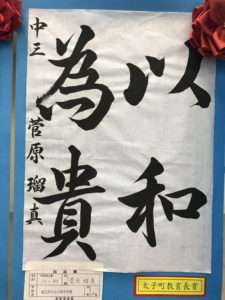 以和
為貴
中三 菅原 瑠真
太子町教育長賞